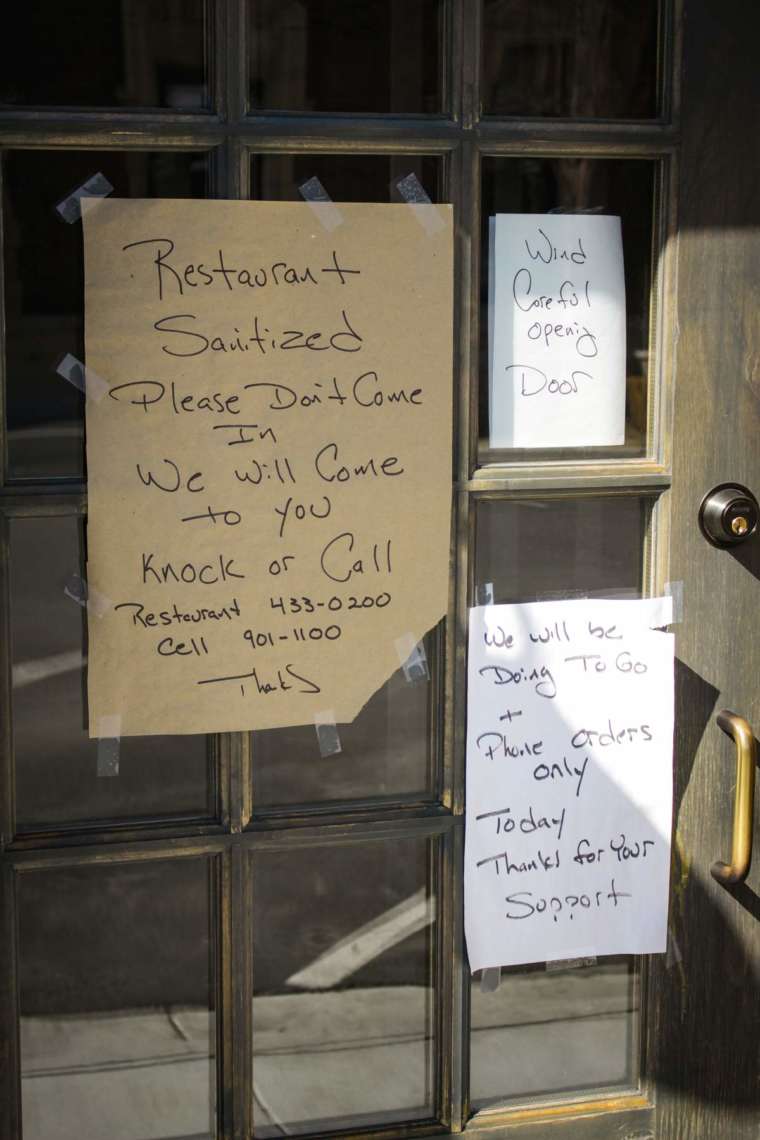 Restaurant
Sanitized
Please Don't Come
In
We will Come
to you
Knock or Call
Restaurant 433-0200
Cell 901-1100
Thanks
Wind
Careful
openig
Door
We will be
Doing To Go
+
Phone orders
only
Today
Thanks for Your
Support